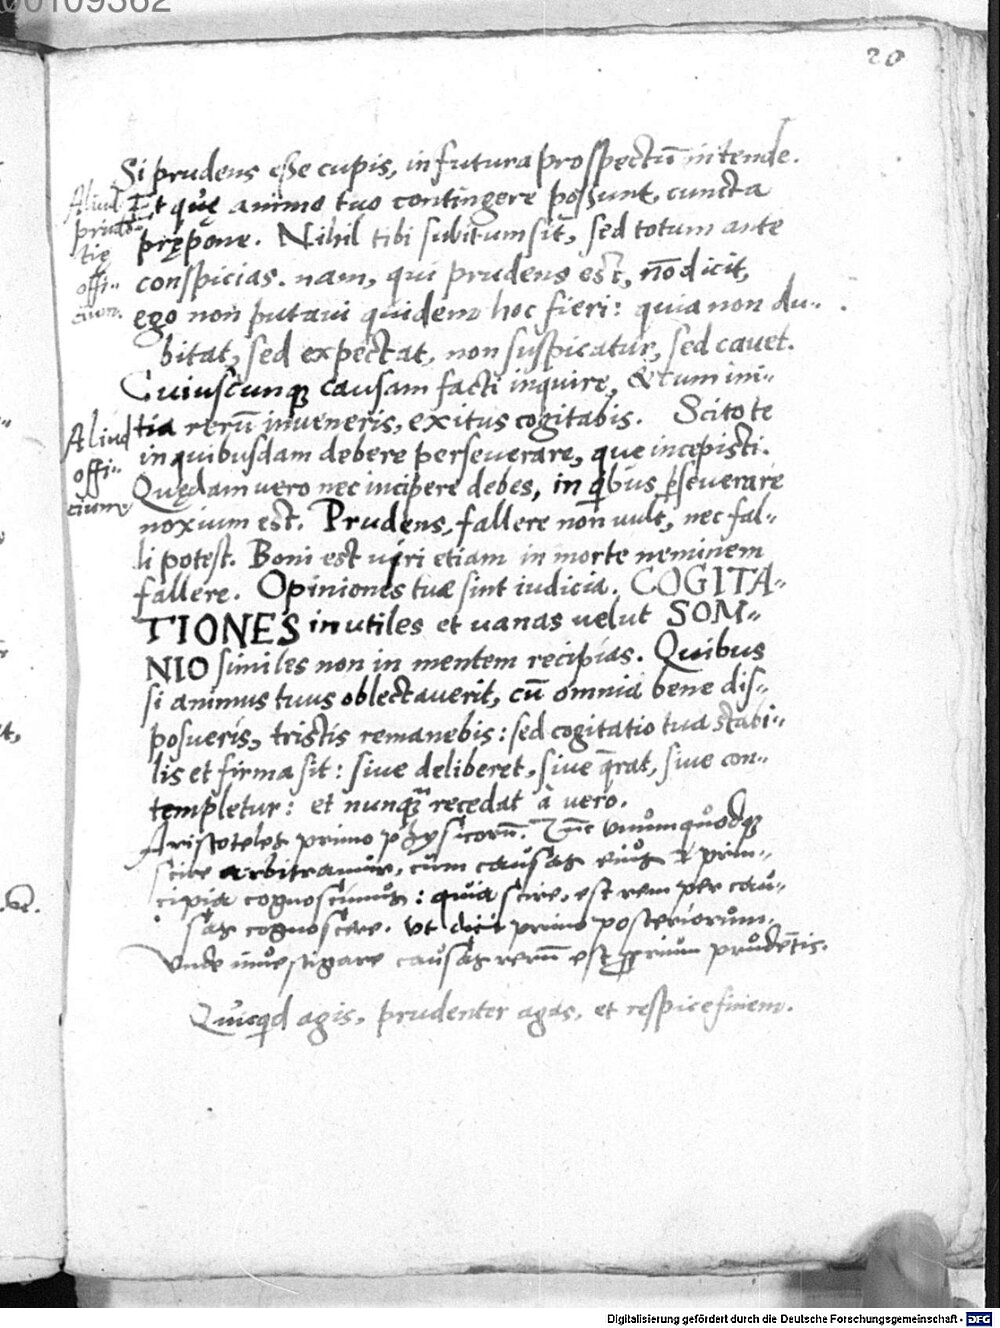 00109362
20
Si prudens esse cupis, in futura prospectū intende.
Et quę animo tuo contingere possunt, cuncta
prępone. Nihil tibi subitum sit, sed totum ante
conspicias. nam, qui prudens est, nō dicit,
ego non putavi quidem hoc fieri: quia non du-
bitat, sed expectat, non suspicatur, sed cavet.
Cuiuscunqꝫ causam facti inquire, & cum ini-
tia rerū inveneris, exitus cogitabis. Scito te
in quibusdam debere perseverare, que incepisti.
Quędam vero nec incipere debes, in qbus ꝑseverare
noxium est. Prudens, fallere non vult, nec fal-
li potest. Boni est viri etiam in morte neminem
fallere. Opiniones tuæ sint iudicia. COGITA-
TIONES inutiles et vanas velut SOM-
NIO similes non in mentem recipias. Quibus
si animus tuus oblectaverit, cū omnia bene dis-
posueris, tristis remanebis: sed cogitatio tua stabi-
lis et firma sit: sive deliberet, sive q̄rat, sive con-
templetur: et nunqꝫ recedat à vero.
Aristoteles primo physicorū. Tūc unumquodqꝫ
scire arbitramur, cum causas eius & prin-
cipia cognoscimus: quia scire, est rem per cau-
sas cognoscere. ut dicit primo posteriorum.
Unde investigare causas rerū est ꝓprium prudētis.
Quicqd agis, prudenter agas, et respice finem.
Aliud
prudē-
tię
offi-
cium.
Aliud
offi-
cium
Digitalisierung gefördert durch die Deutsche Forschungsgemeinschaft - DFG